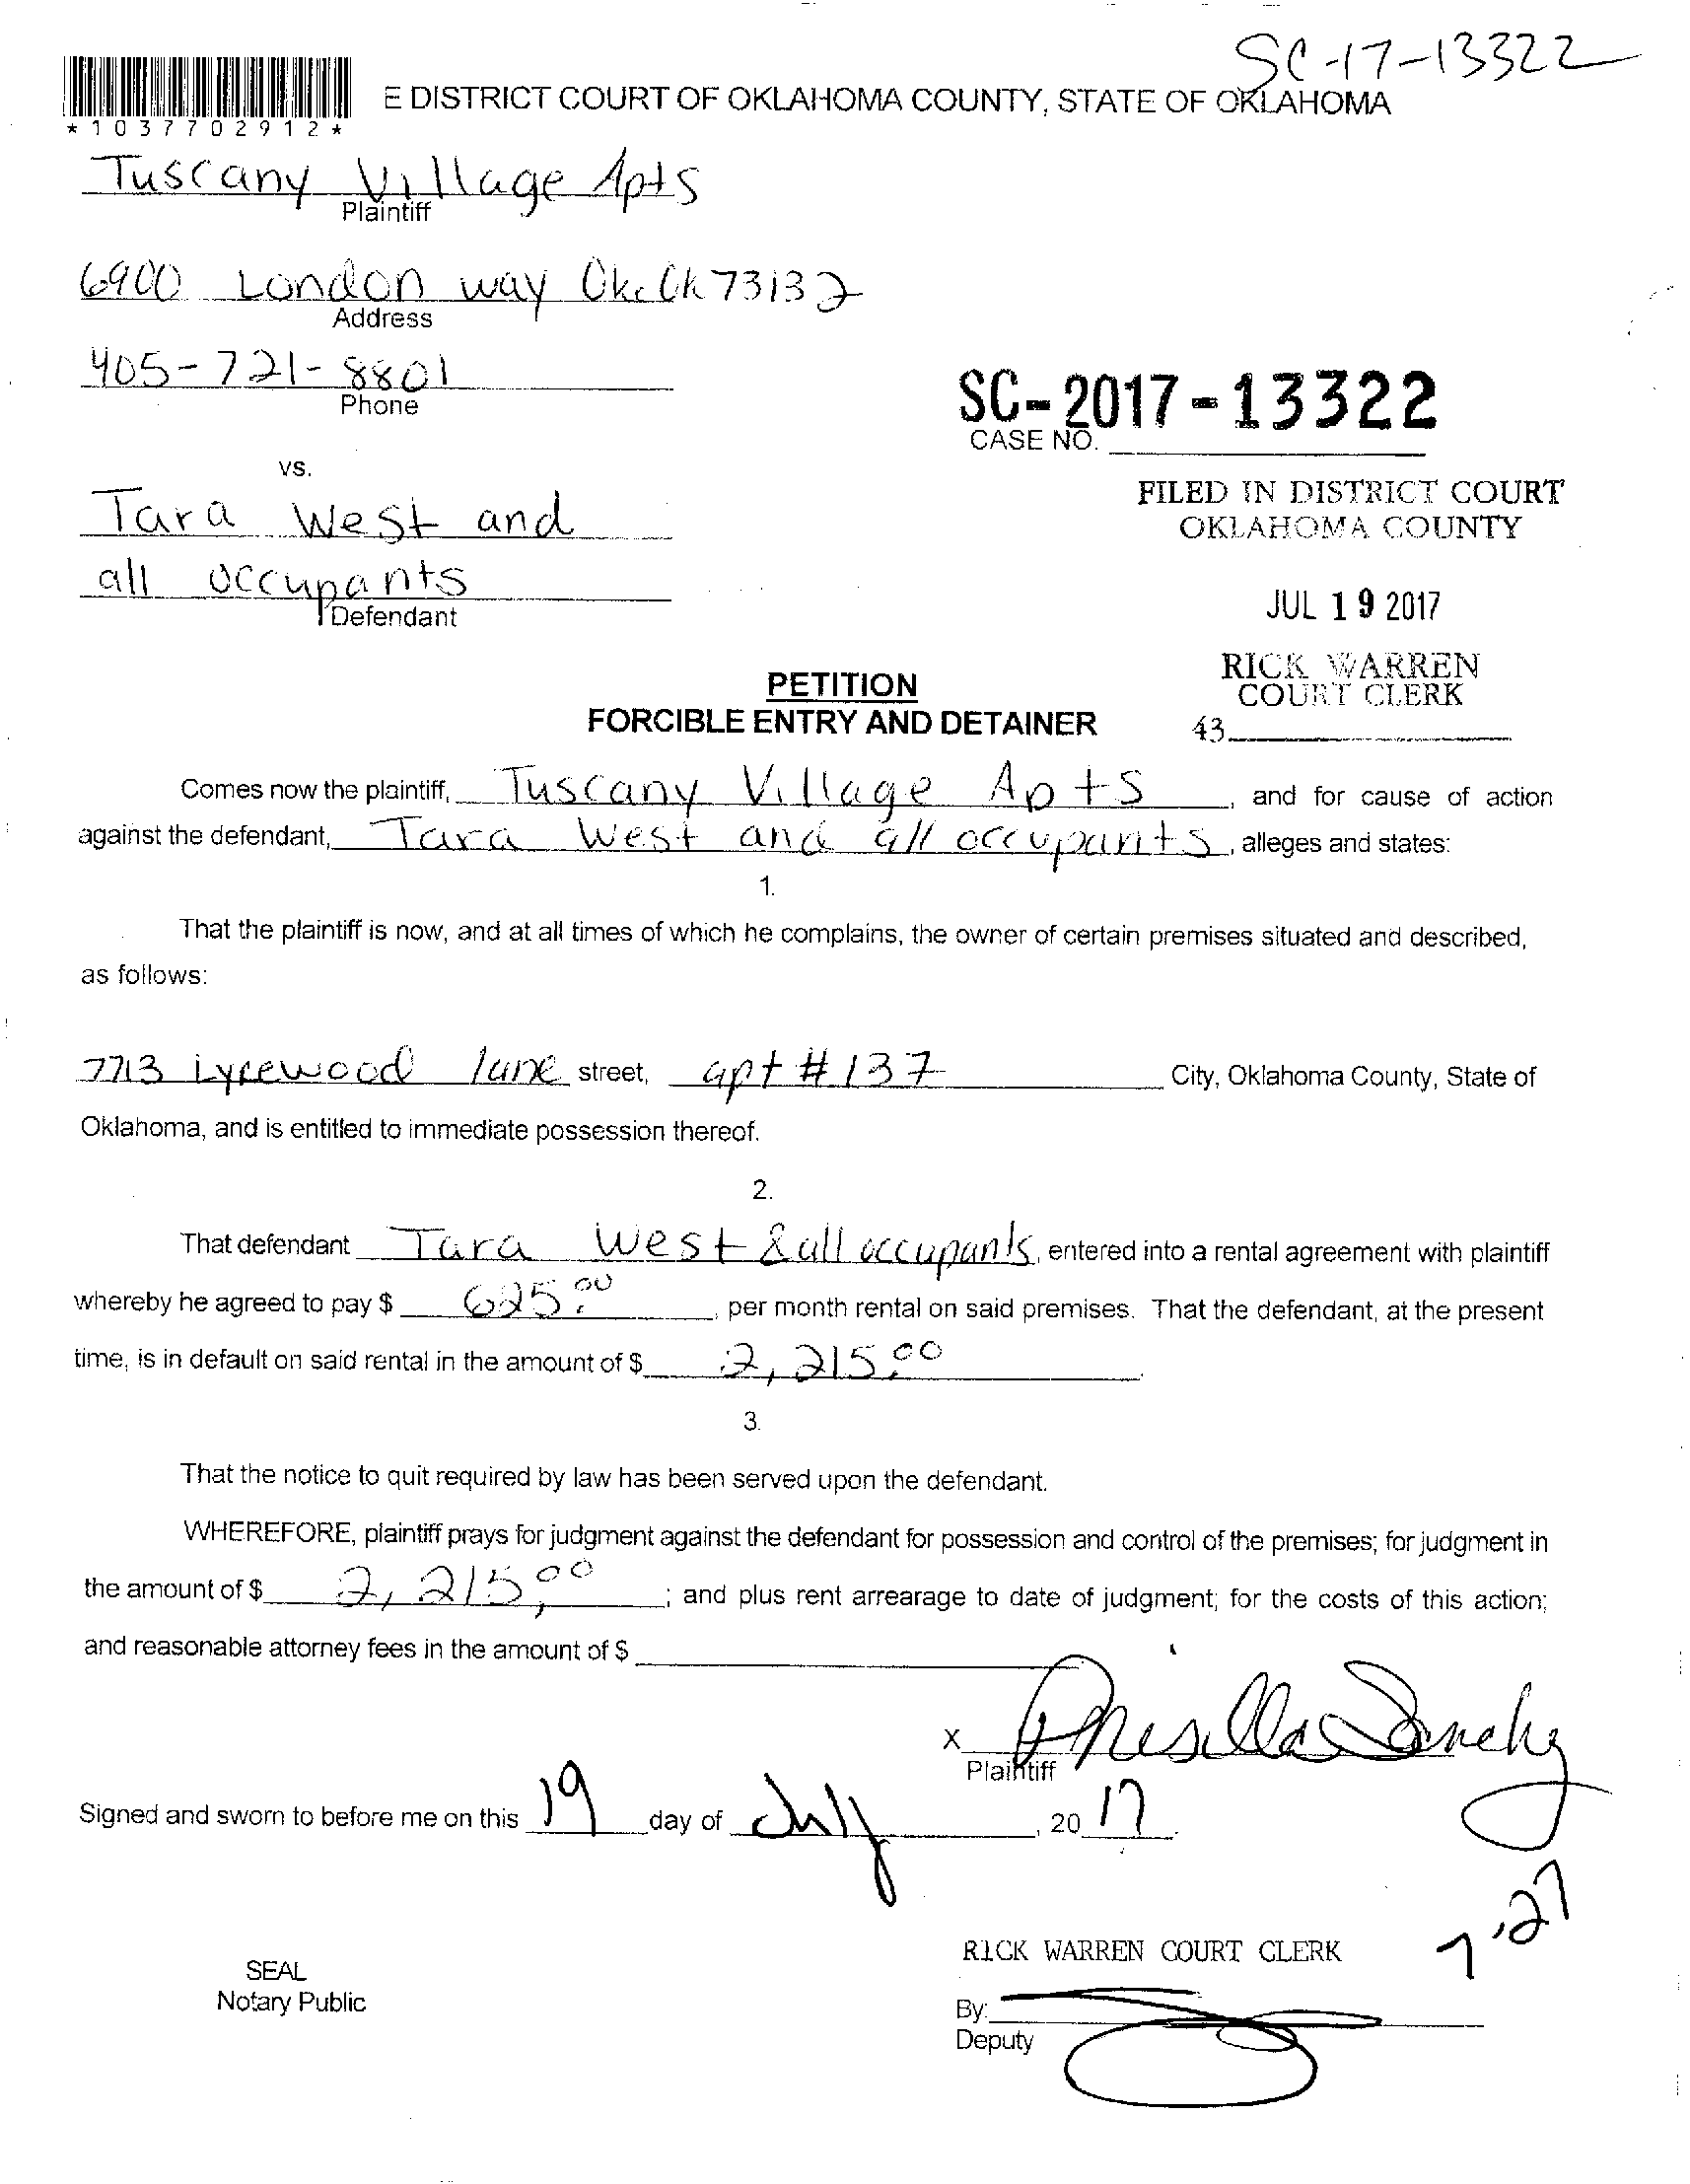 SC-17-13322
E DISTRICT COURT OF OKLAHOMA COUNTY, STATE OF OKLAHOMA
*1037702912*
Tuscany Village Apts
Plaintiff
6900 London way Okc Ok 73132
Address
405-721-8801
Phone
SC-2017-13322
CASE NO.
vs.
Tara West and
all occupants
Defendant
FILED IN DISTRICT COURT
OKLAHOMA COUNTY
JUL 19 2017
RICK WARREN
COURT CLERK
43
PETITION
FORCIBLE ENTRY AND DETAINER
Comes now the plaintiff, Tuscany Village Apts, and for cause of action
against the defendant, Tara West and all occupants, alleges and states:
1.
That the plaintiff is now, and at all times of which he complains, the owner of certain premises situated and described,
as follows:
7713 Lyrewood lane street, apt # 137 City, Oklahoma County, State of
Oklahoma, and is entitled to immediate possession thereof.
2.
That defendant Tara West & all occupants, entered into a rental agreement with plaintiff
whereby he agreed to pay $ 625.00, per month rental on said premises. That the defendant, at the present
time, is in default on said rental in the amount of $ 2,215.00.
3.
That the notice to quit required by law has been served upon the defendant.
WHEREFORE, plaintiff prays for judgment against the defendant for possession and control of the premises; for judgment in
the amount of $ 2,215.00; and plus rent arrearage to date of judgment; for the costs of this action;
and reasonable attorney fees in the amount of $
X Prisilla Sanchez
Plaintiff
Signed and sworn to before me on this 19 day of July, 20 17.
7-27
SEAL
Notary Public
RICK WARREN COURT CLERK
By:
Deputy